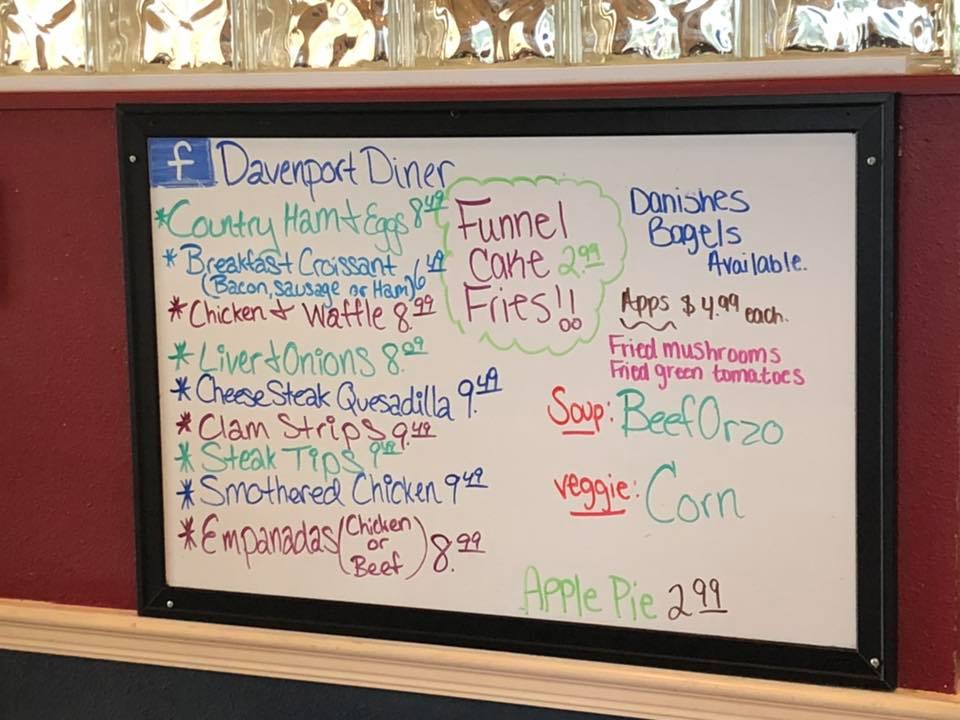 f Davenport Diner
*Country Ham & Eggs 8.49
*Breakfast Croissant 6.49
(Bacon, sausage or Ham)
*Chicken & Waffle 8.99
*Liver & Onions 8.29
*CheeseSteak Quesadilla 9.49
*Clam Strips 9.49
*Steak Tips 9.49
*Smothered Chicken 9.49
*Empanadas (Chicken or Beef) 8.99
Funnel
Cake 2.99
Fries!!
Danishes
Bagels
Available.
Apps $4.99 each.
Fried mushrooms
Fried green tomatoes
Soup: Beef Orzo
veggie: Corn
Apple Pie 2.99